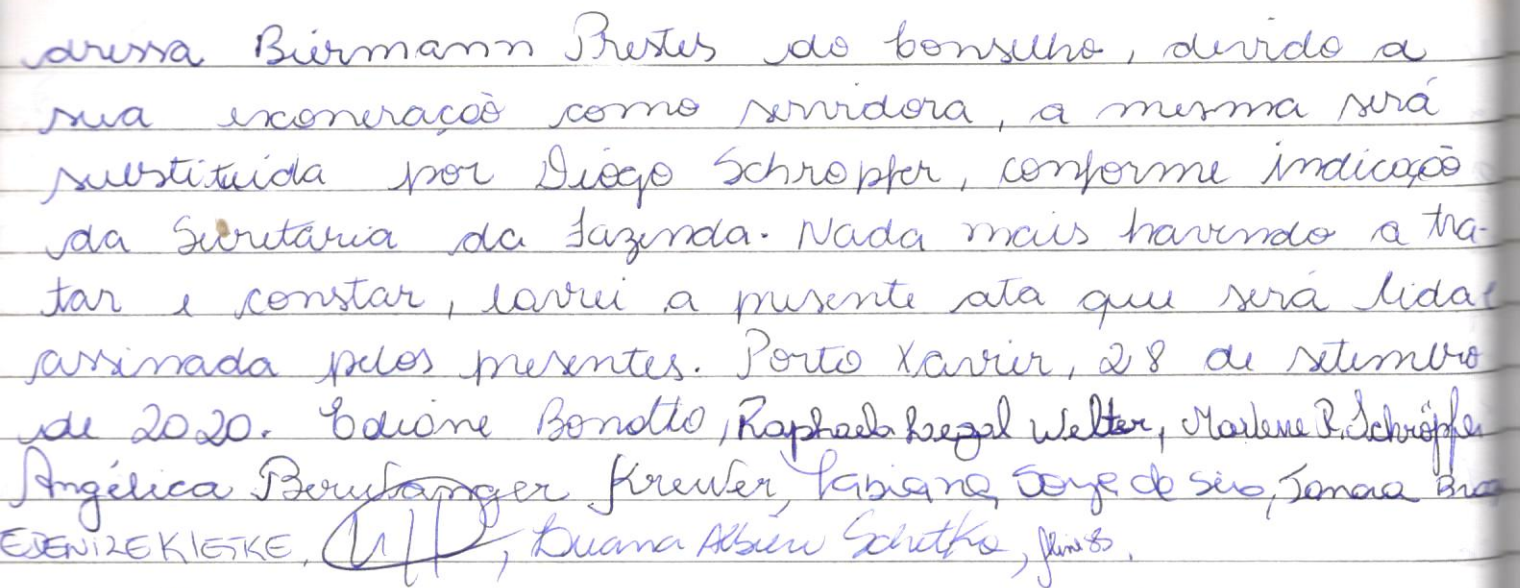 dressa Biermann Prestes do Conselho, devido a
sua exoneração como servidora, a mesma será
substituída por Diogo Schropfer, conforme indicação
da Secretária da Fazenda. Nada mais havendo a tra-
tar e constar, lavrei a presente ata que será lida e
assinada pelos presentes. Porto Xavier, 28 de setembro
de 2020. Edione Bonotto, Raphaela Welter, Marlene R. Schröpfer
Angélica Krewer, Fabiana
EDENIZE KIETKE, Luana